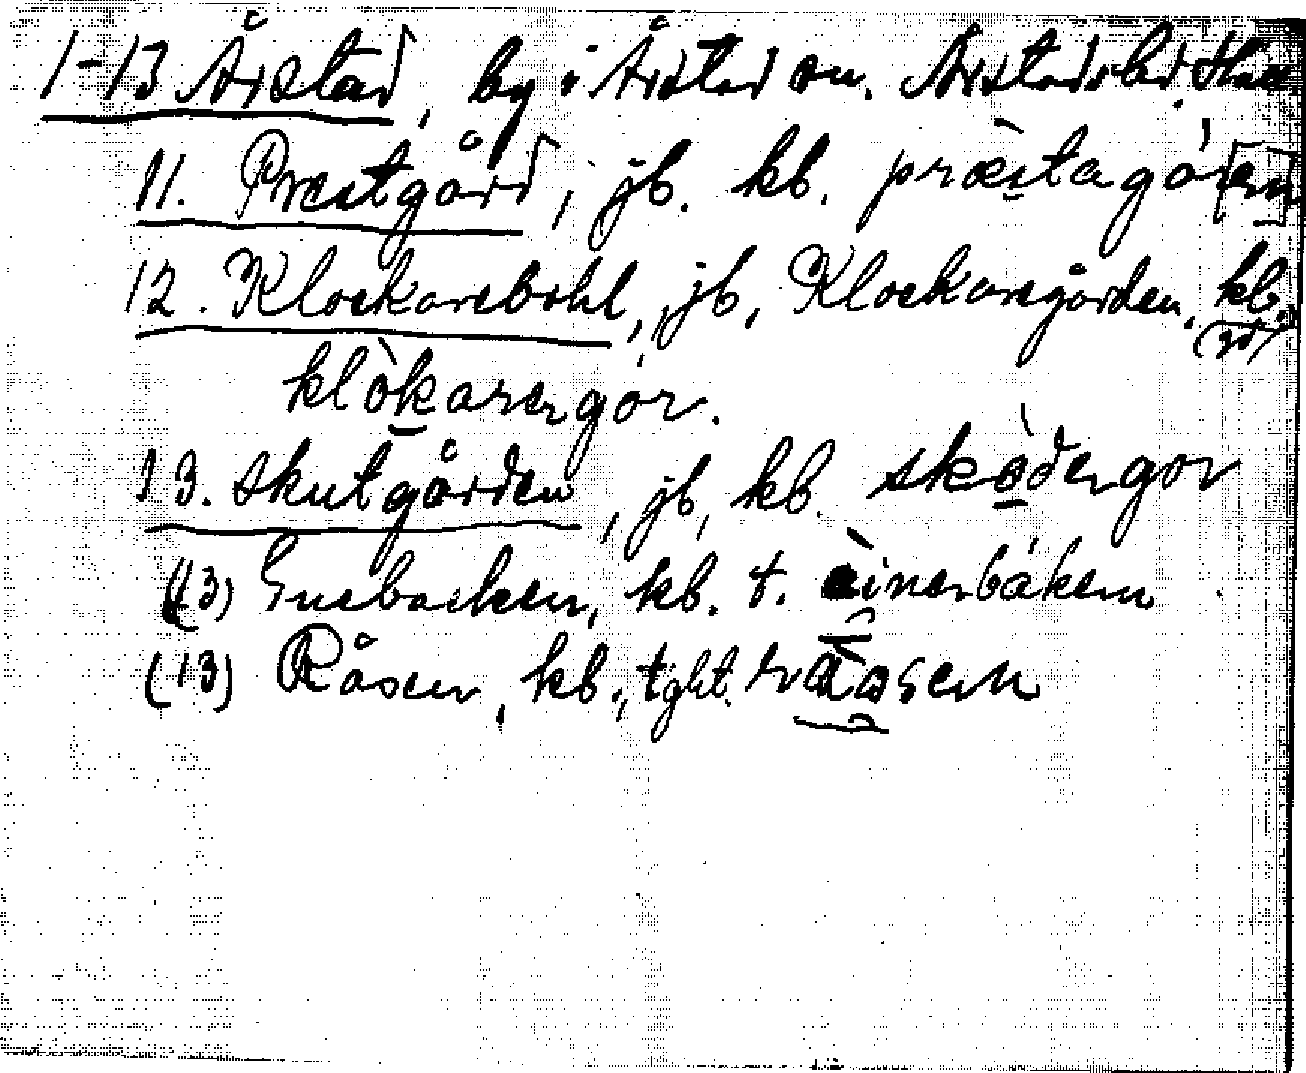 1-13 Årstad, by i Årstad sn. Årstads hd. Hall
11. Præstgård, jb. kb. præ̀stagó́r[en]
12. Klockarebohl, jb, Klockaregården, kb.
klòkarergór.
13. Skutgården, jb, kb. skò̀dergor
(13) Enebacken, kb. t. èinerbákem
(13) Råsen, kb., tght. råosem